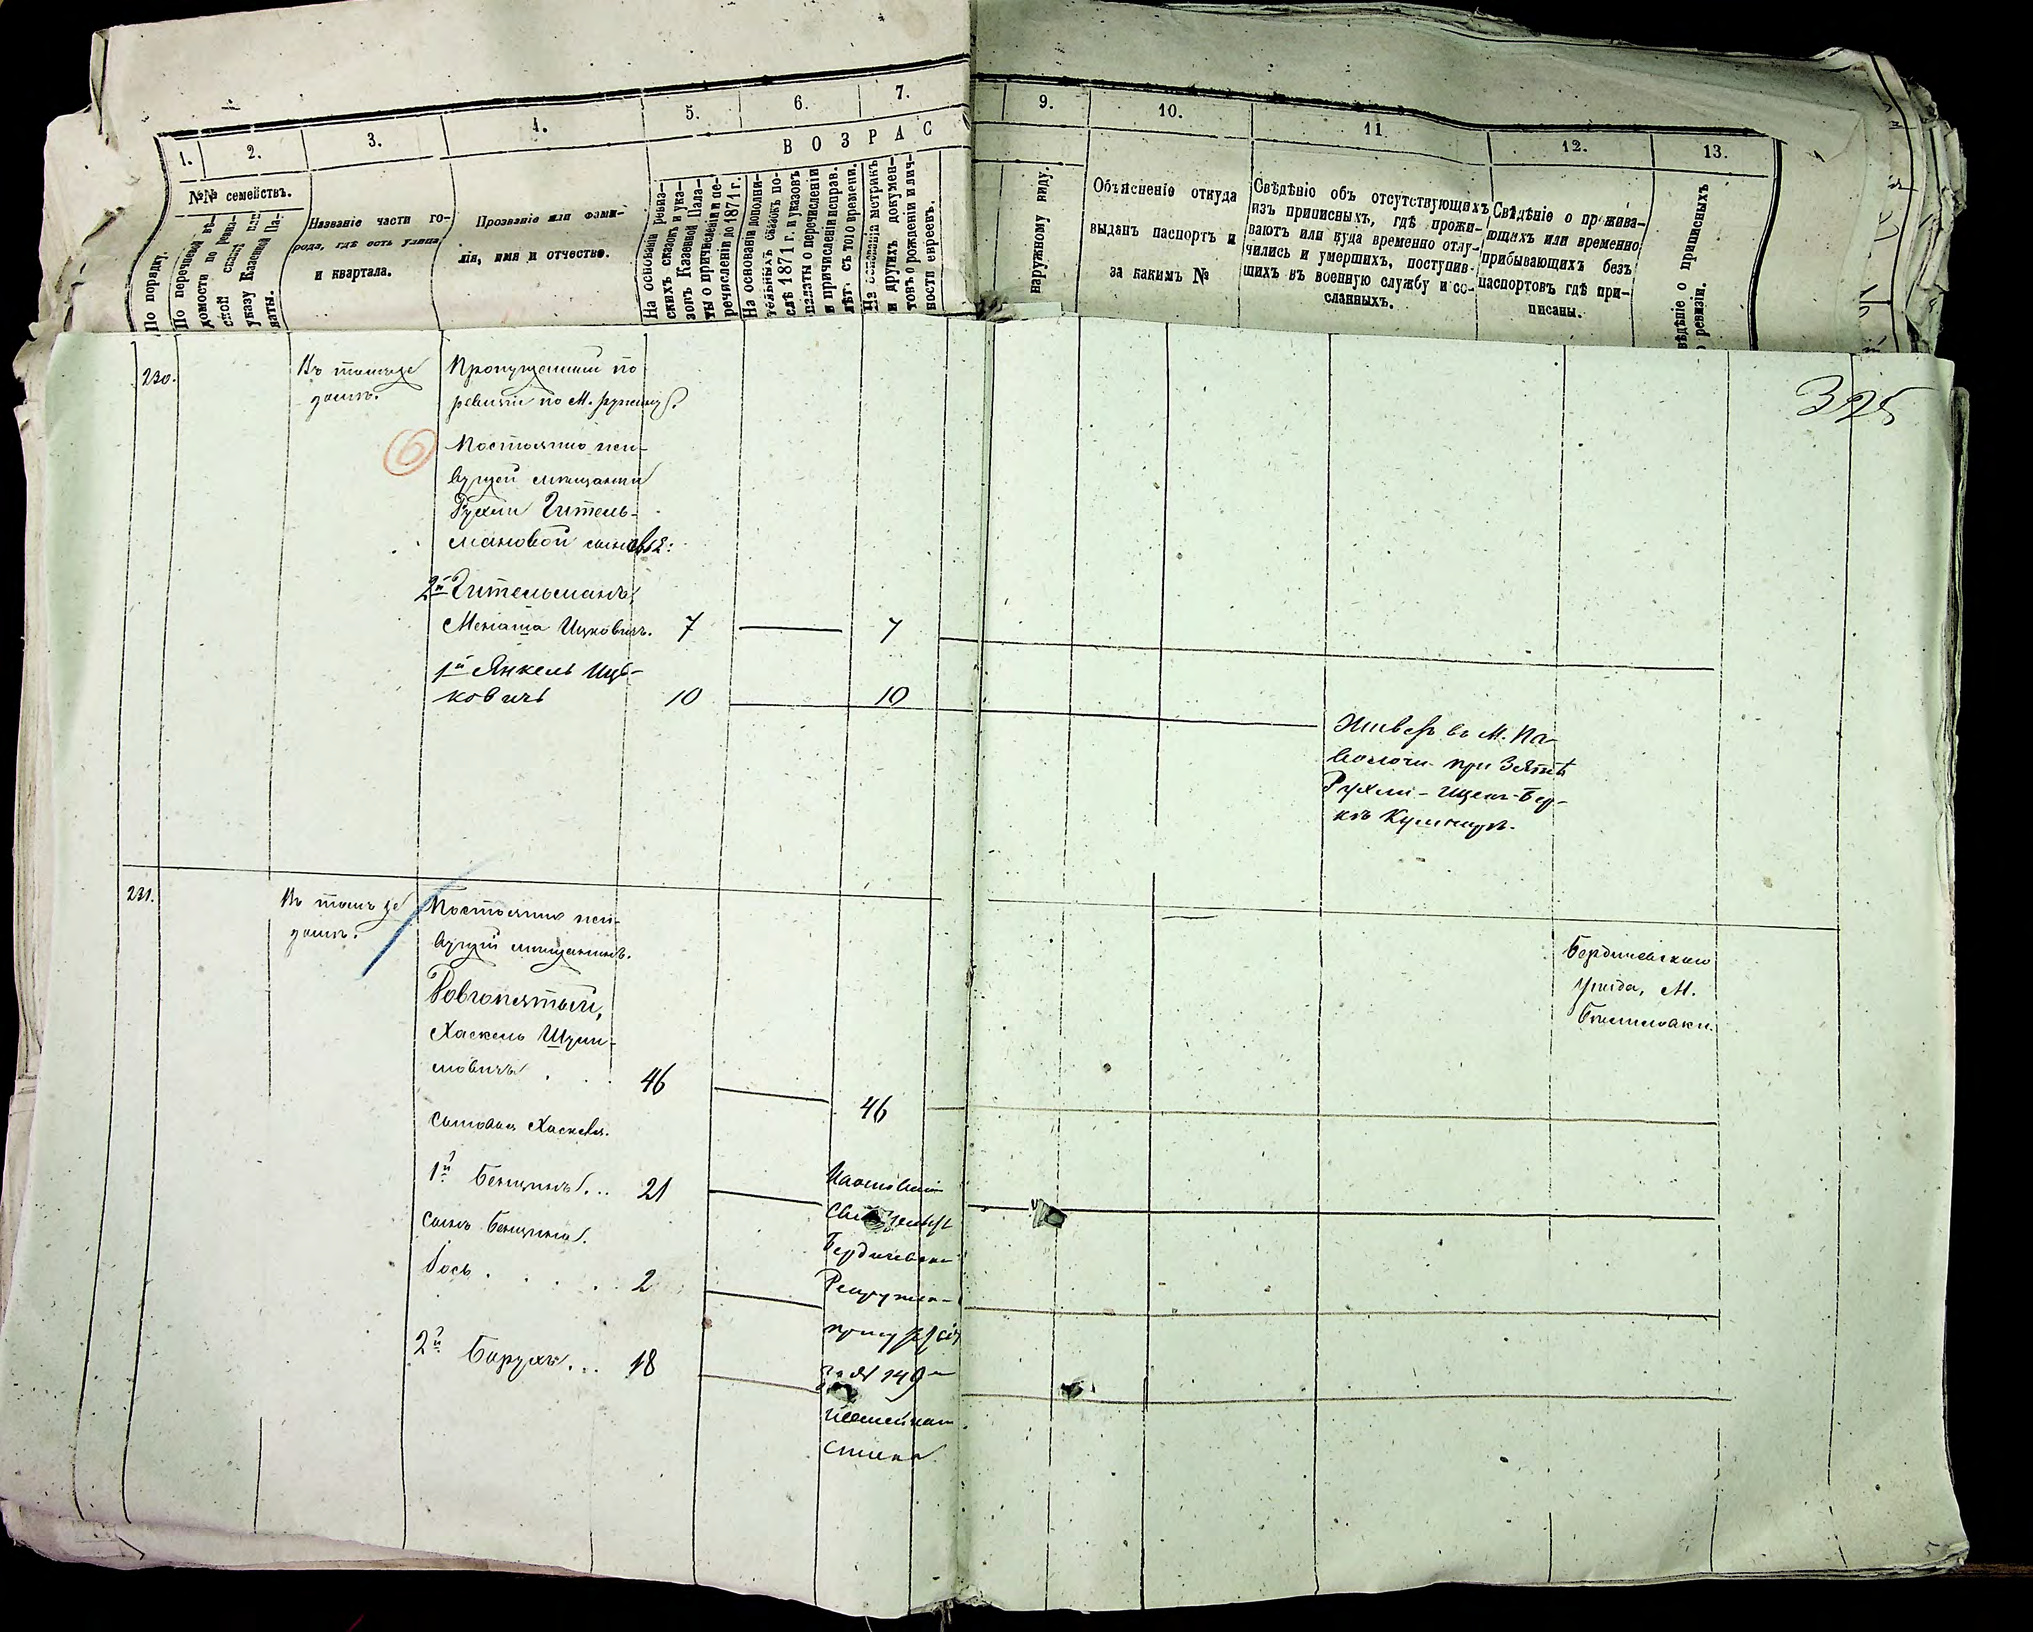 1.
2.
3.
4.
5.
6.
7.
9.
10.
11.
12.
13.
В О З Р А С
№№ семействъ.
По порядку.
По перечневой вѣ-
домости по ревиз-
ской
указу Казенной Па-
латы.
Названіе части го-
рода, гдѣ есть улица
и квартала.
Прозваніе или фами-
лія, имя и отчество.
На основаніи ревиз-
скихъ сказокъ и ука-
зовъ Казенной Пала-
ты о причисленіи и пе-
речисленіи до 1871 г.
На основаніи дополни-
тельныхъ сказокъ по-
слѣ 1871 г. и указовъ
палаты о перечисленіи
и причисленіи исправ.
лѣт. съ того времени.
На основаніи метрикъ
и другихъ докумен-
товъ о рожденіи и лич-
ности евреевъ.
наружному виду.
Объясненіе откуда
выданъ паспортъ и
за какимъ №
Свѣдѣніе объ отсутствующихъ
изъ приписныхъ, гдѣ прожи-
ваютъ или куда временно отлу-
чились и умершихъ, поступив-
шихъ въ военную службу и со-
сланныхъ.
Свѣдѣніе о прожива-
ющихъ или временно
прибывающихъ безъ
паспортовъ гдѣ при-
писаны.
вѣдѣніе о приписныхъ
ревизіи.
325
230.
Въ томъ же
домѣ.
Пропущенный по
ревизіи по М.
6
Постоянно жи-
вущей мѣщанки
Рухли Гительъ-
мановой сыновья:
2й Гительманъ
Менаша Ицковичъ. 7 7
1й Янкель Иць-
ковичъ 10 10
Живетъ въ М. Па-
волочи при зятѣ
Рухли - Бер-
231.
Въ томъ же
домѣ.
Постоянно жи-
вущій мѣщанинъ.
Довгопятый,
Хаскель Шули-
мовичъ 46
46
сыновья Хаскеля.
1й Бенционъ. .. 21
сынъ Бенциона.
Іось . . . . . 2
2й Борухъ. .. 18
Бердичевск
за № 149
посемейнаго
списка
Бердичевскаго
уѣзда, М.